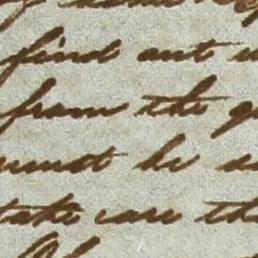 find out
from the
must be
take care th